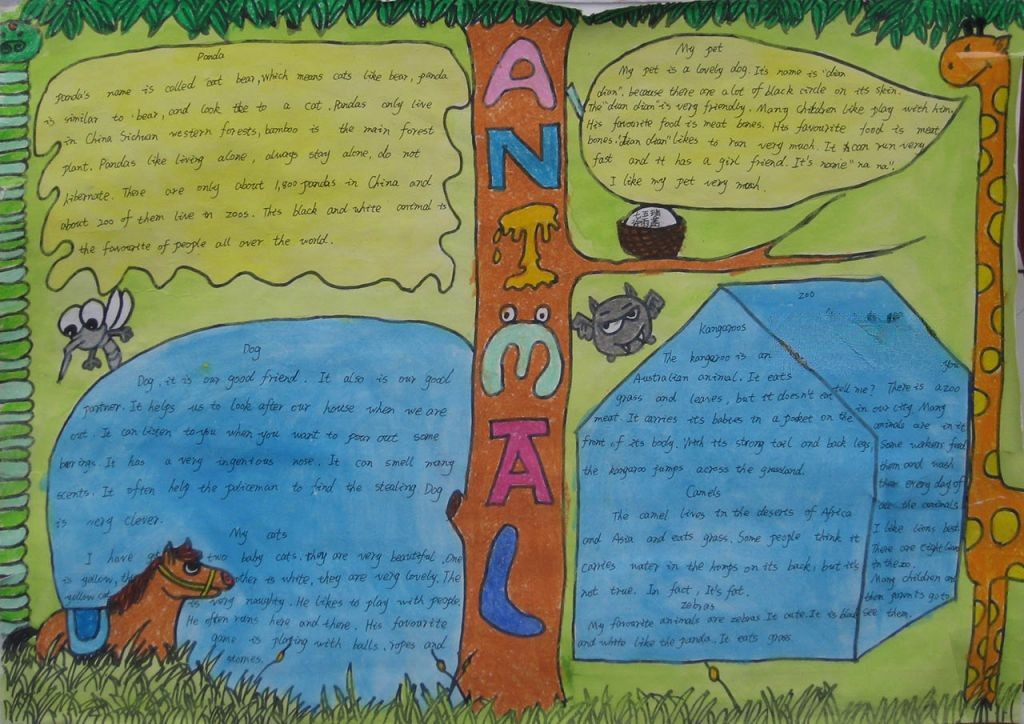 Panda
Panda's name is called cat bear, which means cats like bear, panda
is similar to bear, and look like to a cat. Pandas only live
in China Sichuan western forests, bamboo is the main forest
plant. Pandas like living alone, always stay alone, do not
hibernate. There are only about 1,800 pandas in China and
about 200 of them live in zoos. This black and white animal is
the favourite of people all over the world.
ANIMAL
My pet
My pet is a lovely dog. It's name is "dian
dian". because there are a lot of black circle on its skin.
The "dian dian" is very friendly. Many children like play with him.
His favourite food is meat bones. His favourite food is meat
bones. "dian dian" likes to ran very much. It can run very
fast and it has a girl friend. It's name "na na".
I like my pet very much.
Dog
Dog, it is our good friend. It also is our good
partner. It helps us to look after our house when we are
out. It can listen to you when you want to pour out some
. It has a very ingenious nose. It can smell many
scents. It often help the policeman to find the stealing Dog
is very clever.
My cats
I have two baby cats. they are very beautiful. One
is yellow, the other is white, they are very lovely. The
yellow cat is very naughty. He likes to play with people.
He often runs here and there. His favourite
game is playing with balls, ropes and
stones.
Kangaroos
The kangaroo is an
Australian animal. It eats
grass and leaves, but it doesn't eat
meat. It carries its babies in a pocket on the
front of its body. With its strong tail and back legs,
the kangaroo jumps across the grassland.
Camels
The camel lives in the deserts of Africa
and Asia and eats grass. Some people think it
carries water in the humps on its back, but it's
not true. In fact, it's fat.
zebras
My favourite animals are zebras It cute. It is black
and white like the panda. It eats grass.
zoo
you
tell me? There is a zoo
in our city. Many
animals are in it
Some workers feed
them and wash
them every day of
the animals
I like lions best.
There are eight lion
in the zoo.
Many children and
their parents go to
see them.